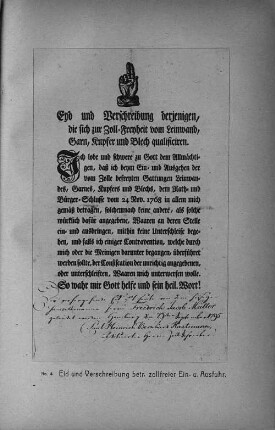 Eyd und Verschreibung derjenigen,
die sich zur Zoll-Freyheit vom Leinwand,
Garn, Kupfer und Blech qualificiren.
Ich lobe und schwere zu Gott dem Allmächti-
gen, daß ich beym Ein- und Ausgehen der
vom Zolle befreyten Gattungen Leinwan-
des, Garnes, Kupfers und Blechs, dem Rath- und
Bürger-Schlusse vom 24. Nov. 1763 in allem mich
gemäß betragen, solchemnach keine andere, als solche
würklich dafür angegebene, Waaren an deren Stelle
ein- und ausbringen, mithin keine Unterschleife bege-
hen, und falls ich einiger Contravention, welche durch
mich oder die Meinigen darunter begangen, überführet
werden sollte, der Confiscation der unrichtig angegebenen,
oder unterschleiften, Waaren mich unterwerfen wolle.
So wahr mir Gott helfe und sein heil. Wort!
Friedrich Jacob Müller
Hamburg
No. 4. Eid und Verschreibung betr. zollfreier Ein- u. Ausfuhr.